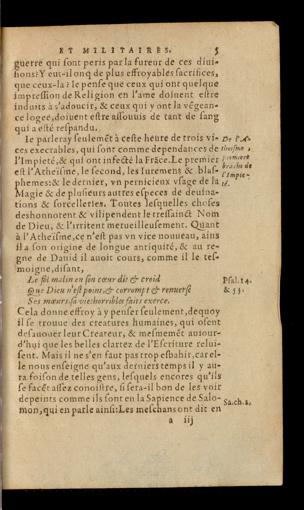 ET MILITAIRES. 5
guerre qui sont peris par la fureur de ces diui-
sions? Y eut-il onq de plus effroyables sacrifices,
que ceux-la? Ie pense que ceux qui ont quelque
impression de Religion en l'ame doiuent estre
induits à s'adoucir, & ceux qui y ont la vēgean-
ce logee, doiuent estre assouuis de tant de sang
qui a esté respandu.
Ie parleray seulemēt à ceste heure de trois vi-
ces execrables, qui sont comme dependances de
l'Impieté, & qui ont infecté la Frāce. Le premier
est l'Atheïsme, le second, les Iuremens & blas-
phemes: & le dernier, vn pernicieux vsage de la
Magie & de plusieurs autres especes de deuina-
tions & sorcelleries. Toutes lesquelles choses
deshonnorent & vilipendent le tressainct Nom
de Dieu, & l'irritent merueilleusement. Quant
à l'Atheïsme, ce n'est pas vn vice nouueau, ains
il a son origine de longue antiquité, & au re-
gne de Dauid il auoit cours, comme il le tes-
moigne, disant,
Le fol malin en son cœur dit & croid
Que Dieu n'est point, & corrompt & renuerse
Ses mœurs, sa vie: horribles faits exerce.
Cela donne effroy à y penser seulement, dequoy
il se trouue des creatures humaines, qui osent
desauouer leur Createur, & mesmemēt auiour-
d'hui que les belles clartez de l'Escriture relui-
sent. Mais il ne s'en faut pas trop esbahir, car el-
le nous enseigne qu'aux derniers temps il y au-
ra foison de telles gens, lesquels encores qu'ils
se facēt assez conoistre, si sera-il bon de les voir
depeints comme ils sont en la Sapience de Salo-
mon, qui en parle ainsi: Les meschans ont dit en
a iij
De l'A-
theisme,
premiere
brāche de
l'Impie-
té.
Psal. 14.
& 53.
Sa. ch. 2.